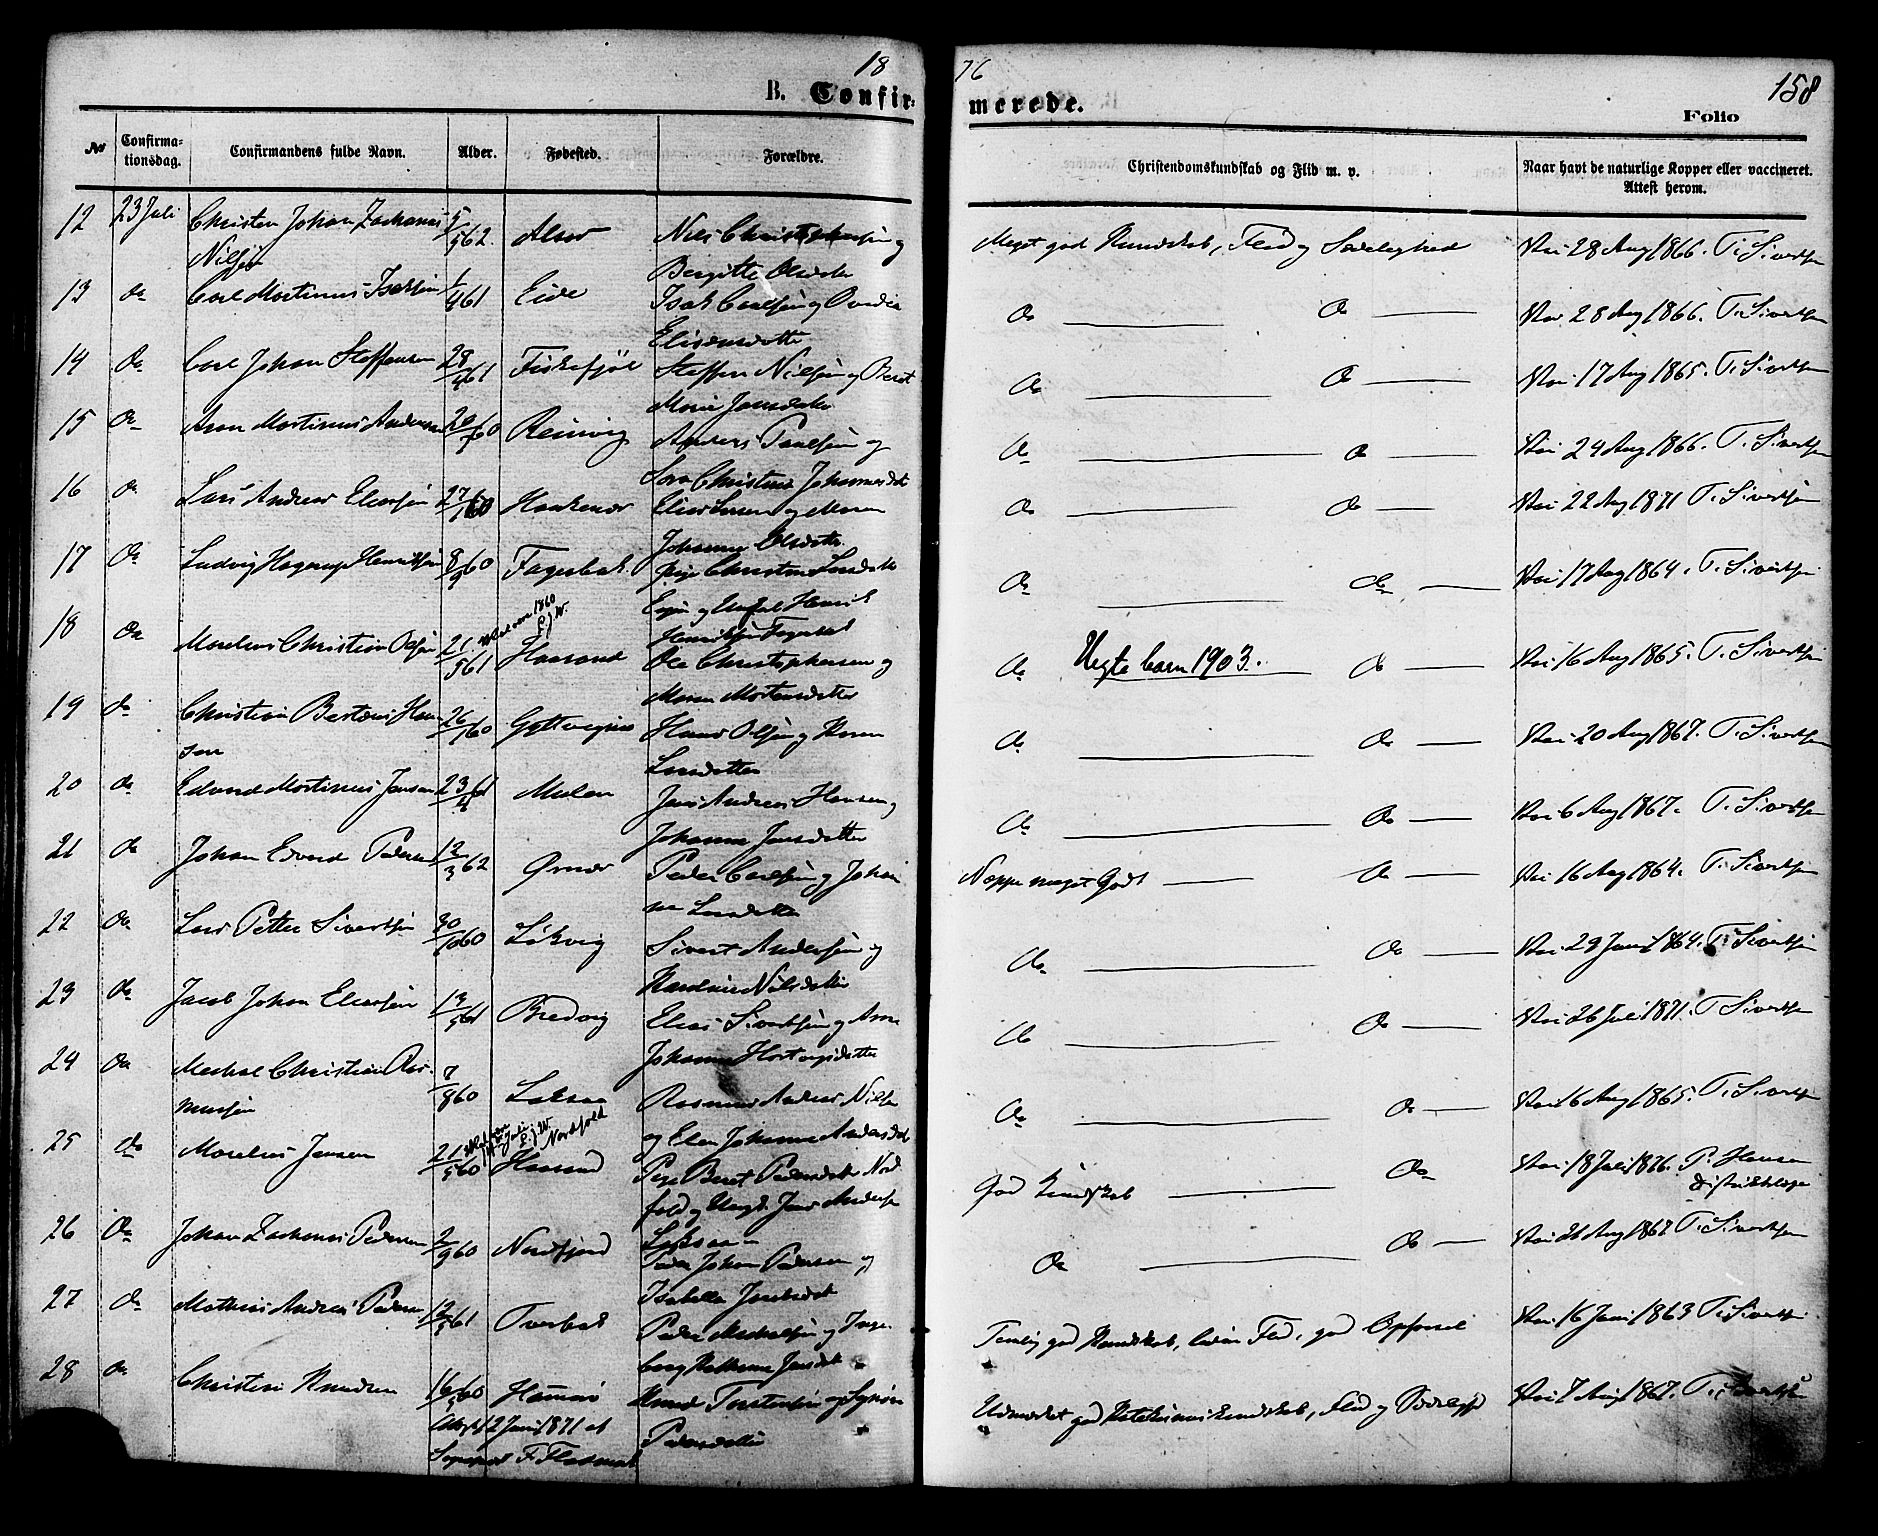 18
B. Confir-
No
Confirma-
tionsdag.
Confirmandens fulde Navn.
Alder.
Fødested.
Forældre.
12 23 Juli Christen Johan Zacharias 5/5 62. Nils Christophersen og
Nilsen Bergitte Olsdatter
13 do Carl Martinus Isaksen 1/4 61 Eide Isak Carlsen og
14 do Carl Johan Steffensen 28/4 61 Fiskefjøl Steffen Nilsen og Beret
Marie Jansdatter
15 do Aron Martinus Andersen 20/7 60 Reinvig Anders Paulsen og
Christina Johannesdtr
16 do Lars Andreas Eliassen 27/1 60 Elias Larsen og Maren
Johanna Olsdatter.
17 do Ludvig Hagerup Henriksen 8/9 60 Fagerbak. Pige Christine Larsdatter
og Ungkal Henrik
Henriksen Fagerbak
18 do Morelius Christian Olsen 21/5 61 Haasand Ole Christophersen og
Maren Mortensdatter
19 do Christian Bertinus Han- 26/1 60 Hans Olsen og Karen
sen Larsdatter
20 do Edvard Martinus Jensen 23/4 61 Mulen Jens Andreas Hansen og
Johanna Jensdatter
21 do Johan Edvard Pedersen 12/3 62 Ørnes Peder Carlsen og Johan
na Larsdatter
22 do Lars Petter Sivertsen 30/10 60 Løkvig Sivert Andersen og
Nilsdatter
23 do Jacob Johan Eliassen 13/5 61 Bredvig Elias Sivertsen og Anne
Johanna Hartvigsdatter
24 do Meskal Christian Ras- 7/8 60 Laksaa Rasmus Andreas Nilsen
mussen og Elen Johanna Andersdtr
25 do Morelius Jensen 21/5 60 Haasand Pige Beret Pedersdatter Nord
Nordfold
fold og Ungk. Jens Andersen
Laksaa
26 do Johan Zacharias Pedersen 2/9 60 Nordfjord Peder Johan Pedersen og
Isabella
27 do Mathias Andreas Pedersen 12/3 61 Tverbak Peder Meskalsen og Inge
borg
28 do Christen Knudsen 16/5 60 Hamarø Knud Torstensen og
Pedersdatter
76
merede.
158
Folio
Christendomskundskab og Flid m. v.
Naar havt de naturlige Kopper eller vaccineret.
Attest herom.
Meget god Kundskab, Flid og Sædelighed Vac. 28 Aug 1866. T. Sivertsen
do do Vac. 28 Aug 1866. T. Sivertsen
do do Vac. 17 Aug 1865. T. Sivertsen
do do Vac. 24 Aug 1866. T. Sivertsen
do do Vac. 22 Aug 1871 T. Sivertsen
do do Vac. 17 Aug 1864. T. Sivertsen
do Uegte barn 1903. do Vac. 16 Aug 1865. T. Sivertsen
do do Vac. 20 Aug 1867. T. Sivertsen
do do Vac. 6 Aug 1867. T. Sivertsen
Neppe meget Godt do Vac. 16 Aug 1864. T. Sivertsen
do do Vac. 29 Juni 1864. T. Sivertsen
do do Vac. 26 Juli 1871. T. Sivertsen
do do Vac. 16 Aug 1865. T. Sivertsen
God Kundskab do Vac. 18 Juli 1876. P. Hansen
Distriktslæge
do do Vac. 26 Aug 1867 T. Sivertsen
Temlig god Kundskab, Flid, god Opførsel Vac. 16 Juni 1863 T. Sivertsen
Udmærket god Katekismikundskab, Flid og Vac. 7 Aug 1867. T. Sivertsen